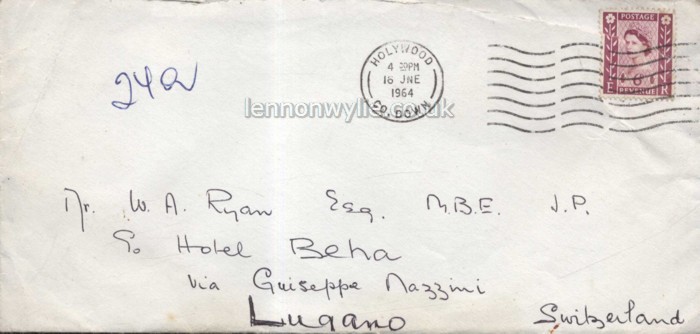 POSTAGE
E R
REVENUE
HOLYWOOD
4 30PM
16 JNE
1964
CO. DOWN
lennonwylie.co.uk
Mr. W. A. Ryan Esq. M.B.E. J.P.
c/o Hotel Beha
Via Guiseppe Mazzini
Lugano Switzerland